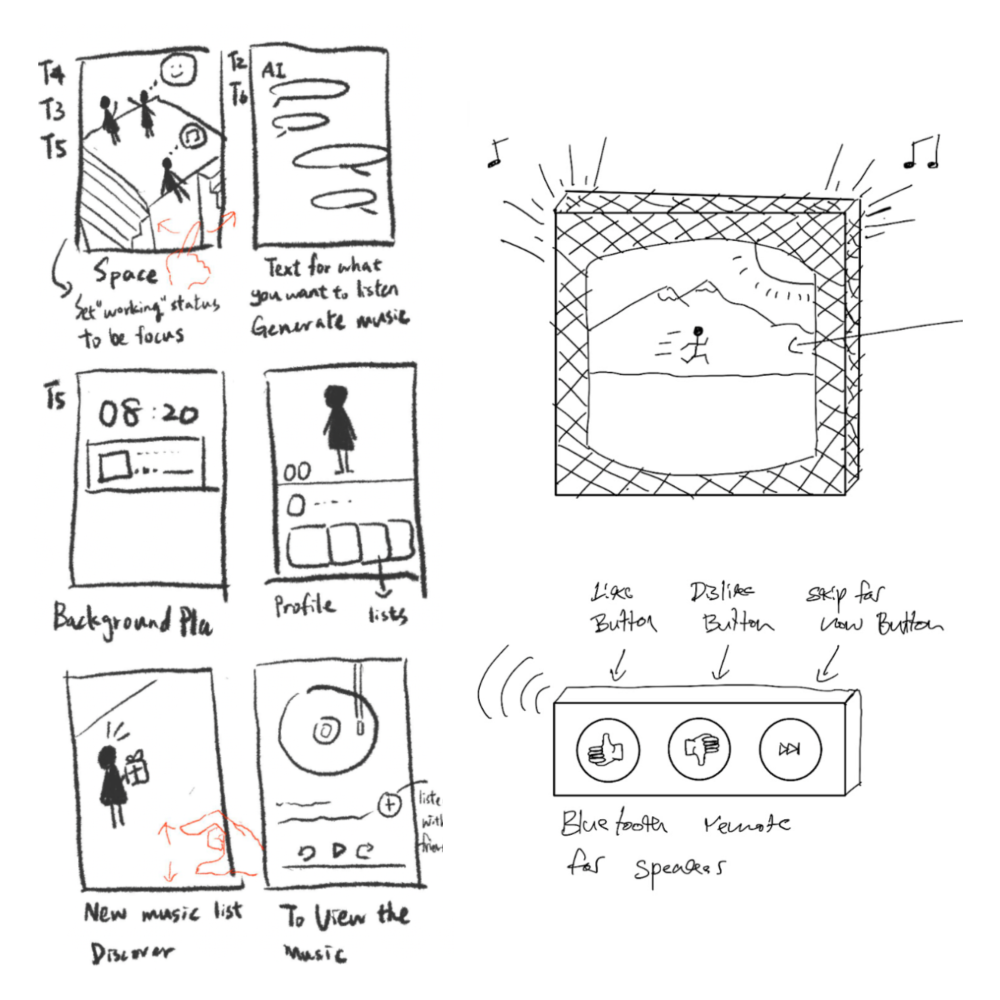 T4
T3
T5
Space
Set "working" status
to be focus
T2
T6
AI
Text for what
you want to listen
Generate music
T5
08:20
Background Pla
Profile
lists
New music list
Discover
listen
with
To View the
music
Like
Button
Dislike
Button
skip for
now Button
Bluetooth remote
for speakers